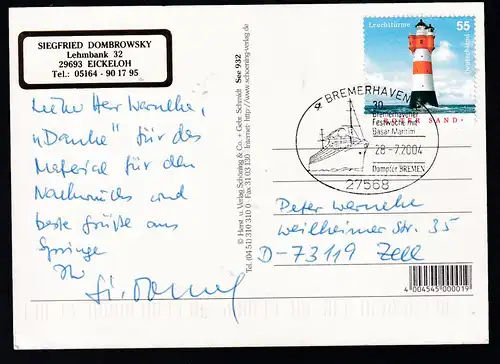 SIEGFRIED DOMBROWSKY
Lehmbank 32
29693 EICKELOH
Tel.: 05164 - 90 17 95
Lieber Herr Warneke,
"Danke" für das
Material für den
Nachwuchs und
beste Grüße aus
Springe
Ihr
© Horst u. Verlag Schöning & Co. + Gebr. Schmidt See 932
Tel. (04 51) 310 310 0 · Fax 31 03 130 · Internet: http://www.schoening-verlag.de
Leuchttürme 55
Deutschland
ROTER SAND
BREMERHAVEN
30.
Bremerhavener
Festwoche mit
Basar Maritim
28-7.2004
Dampfer BREMEN
27568
Peter Warneke
Weilheimer Str. 35
D-73119 Zell
4 004545 000019